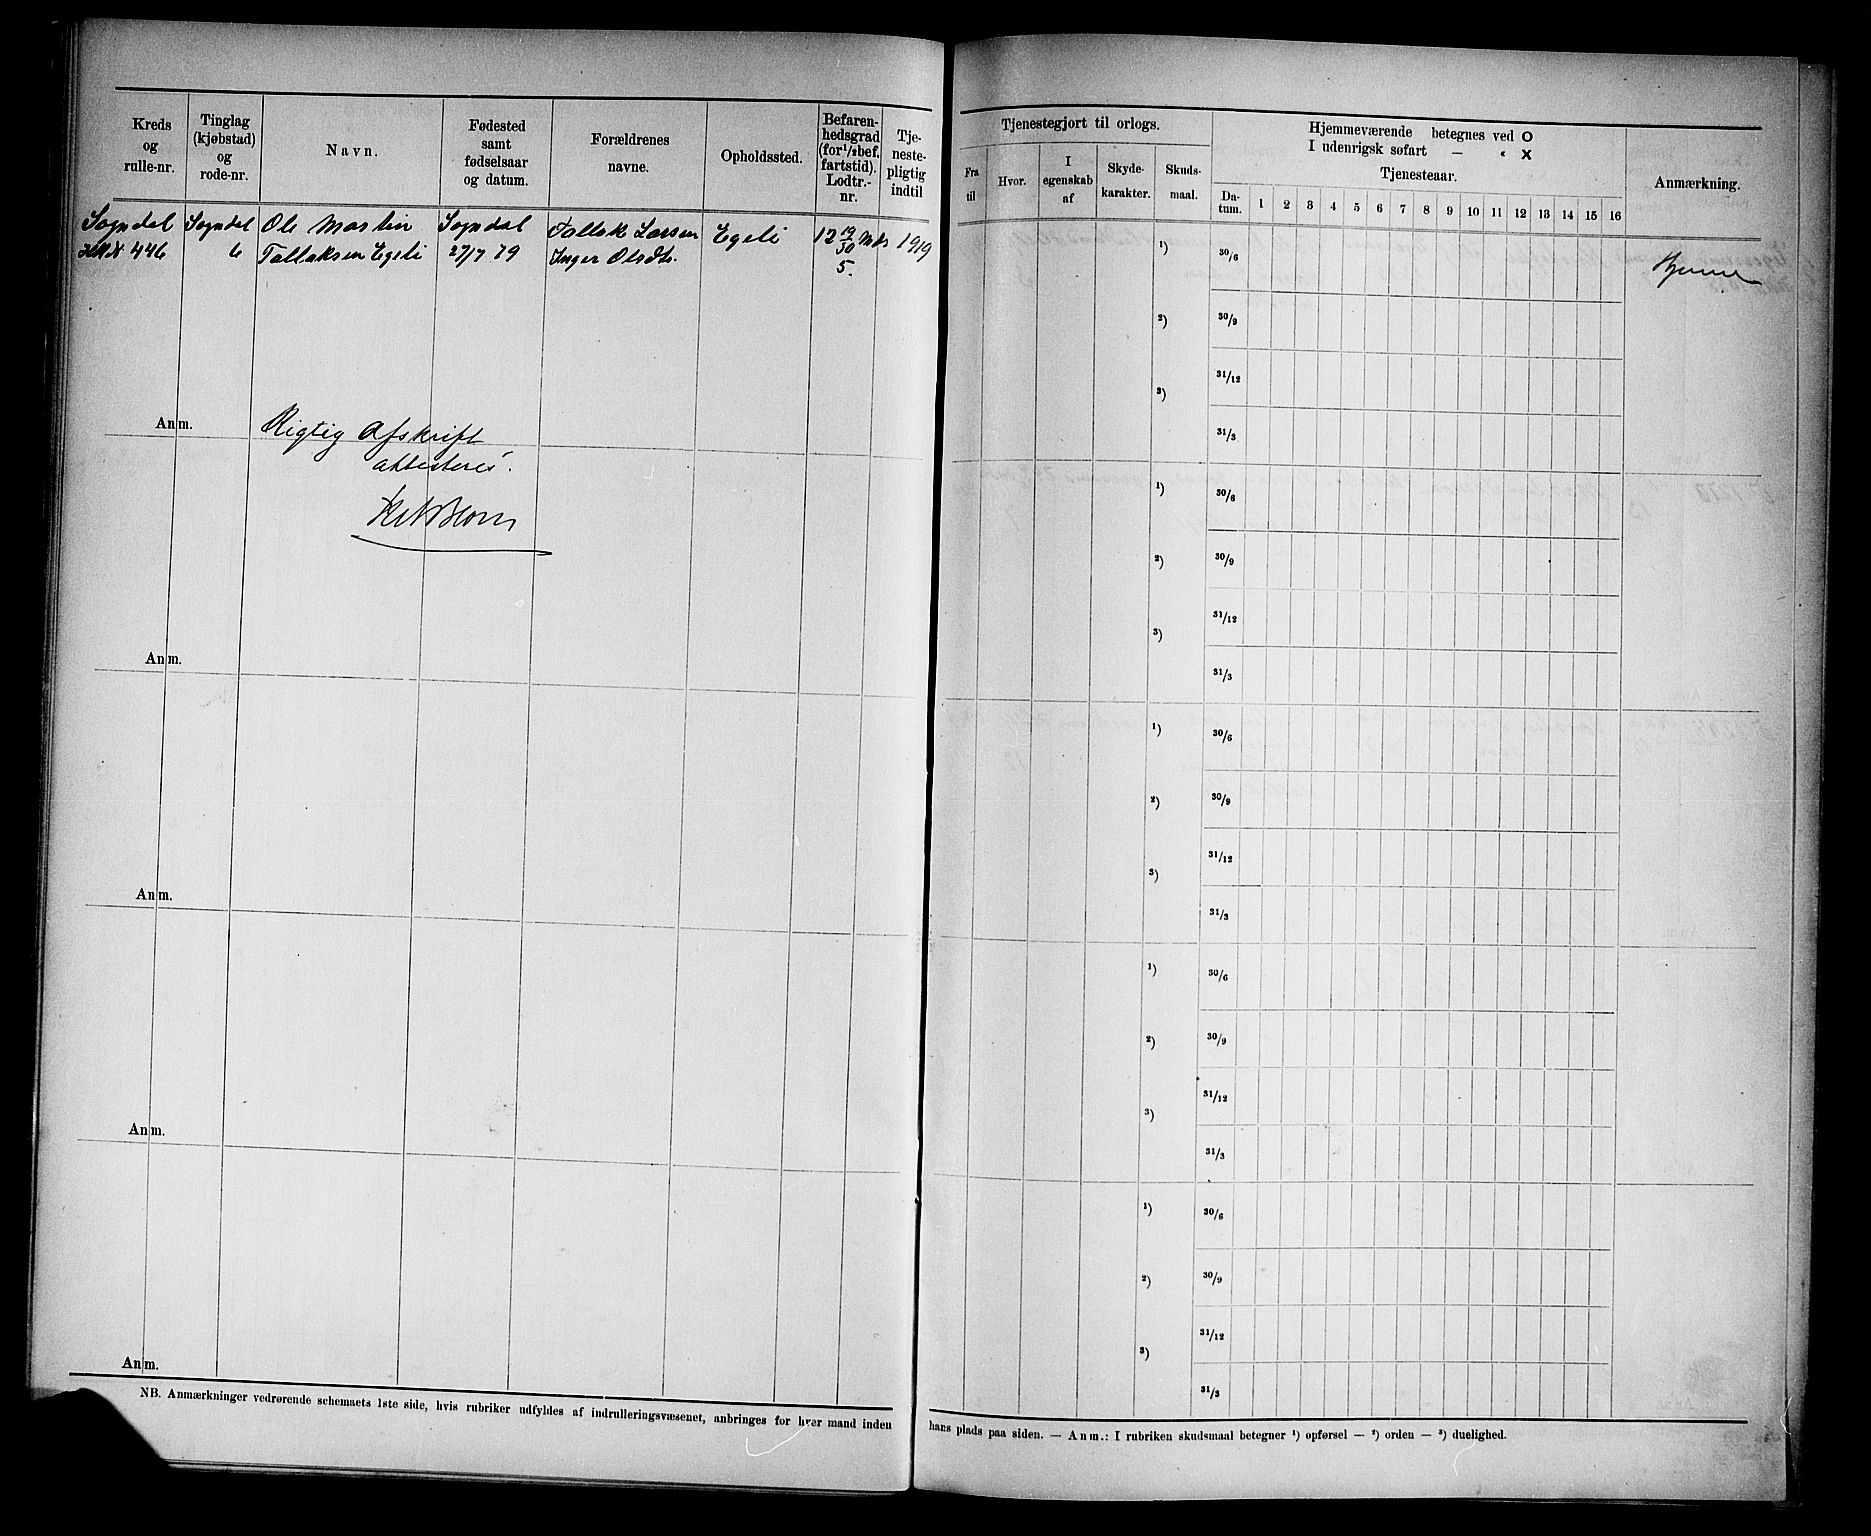 Kreds
og
rulle-nr.
Tinglag
(kjøbstad)
og
rode-nr.
Navn.
Fødested
samt
fødselsaar
og datum.
Forældrenes
navne.
Opholdssted.
Befaren-
hedsgrad
(for 1/2 bef.
fartstid).
Lodtr.-
nr.
Tje-
neste-
pligtig
indtil
Sogndal
446
Sogndal
6
Ole Martin
Tallaksen Egeli
Sogndal
27/7 79
Tallak Larsen
Inger Olsdtr.
Egeli
12 19/30 Mdr
5.
1919
Anm.
Rigtig Afskrift
attesteres.
Anm.
Anm.
Anm.
Anm.
NB. Anmærkninger vedrørende schemaets 1ste side, hvis rubriker udfyldes af indrulleringsvæsenet, anbringes for hver mand inden
Tjenestegjort til orlogs.
Fra
til
Hvor.
I
egenskab
af
Skyde-
karakter.
Skuds-
maal.
Hjemmeværende betegnes ved O
I udenrigsk søfart — " X
Tjenesteaar.
Da-
tum.
1 2 3 4 5 6 7 8 9 10 11 12 13 14 15 16
Anmærkning.
1) 30/6
Hjemme
2) 30/9
31/12
3)
31/3
1) 30/6
2) 30/9
31/12
3)
31/3
1) 30/6
2) 30/9
31/12
3)
31/3
1) 30/6
2) 30/9
31/12
3)
31/3
1) 30/6
2) 30/9
31/12
3)
31/3
hans plads paa siden. — Anm.: I rubriken skudsmaal betegner 1) opførsel — 2) orden — 3) duelighed.